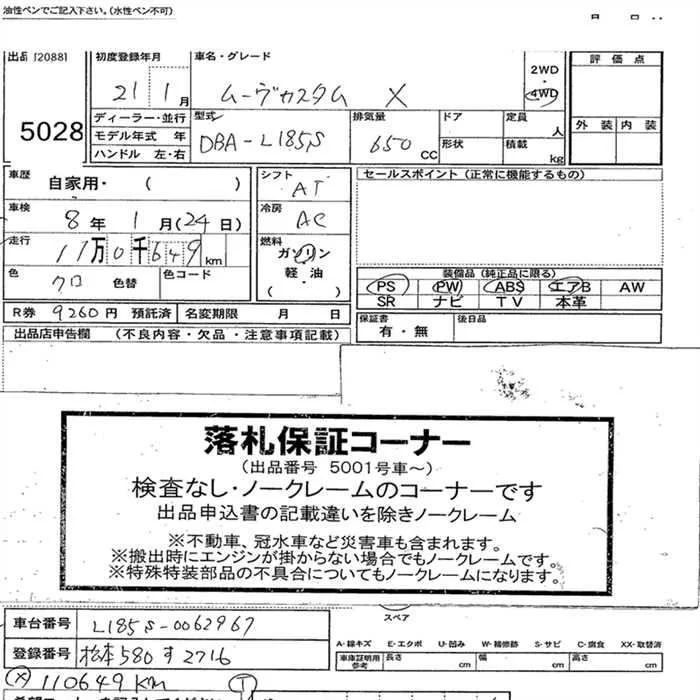 油性ペンでご記入下さい。(水性ペン不可)
出品 [2088] 初度登録年月 車名・グレード 評価点
5028 21 1月 ムーヴカスタム X 2WD・4WD
外装 内装
ディーラー・並行 型式 排気量 ドア 定員 人
モデル年式 年 DBA-L185S 650CC 形状 積載 kg
ハンドル 左・右
車歴 自家用・( ) シフト AT セールスポイント(正常に機能するもの)
車検 8年 1月(24日) 冷房 AC
走行 11万0千649km 燃料 ガソリン
軽油
・
( )
色 クロ 色替 色コード
装備品(純正品に限る)
PS PW ABS エアB AW
SR ナビ TV 本革
R券 9260円 預託済 名変期限 月 日 保証書 有・無 後日品
出品店申告欄 (不良内容・欠品・注意事項記載)
落札保証コーナー
(出品番号 5001号車~)
検査なし・ノークレームのコーナーです
出品申込書の記載違いを除きノークレーム
※不動車、冠水車など災害車も含まれます。
※搬出時にエンジンが掛からない場合でもノークレームです。
※特殊特装部品の不具合についてもノークレームになります。
スペア
車台番号 L185S-0062967
登録番号 松本580す2716
A-線キズ E-エクボ U-凹み W-補修跡 S-サビ C-腐食 XX-取替済
車庫証明用参考 長さ cm 幅 cm 高さ cm
(メ)110649KM